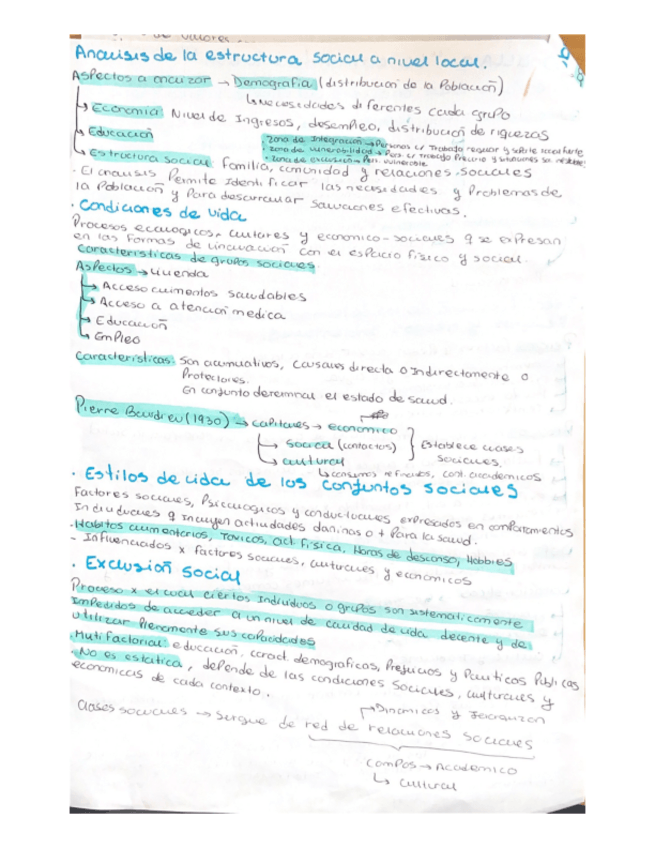 de valores...
Analisis de la estructura social a nivel local.
Aspectos a analizar → Demografia (distribucion de la Poblacion)
↳ necesidades diferentes cada grupo
↳ Economia: Nivel de Ingresos, desempleo, distribucion de riquezas
↳ Educacion
• Zona de Integracion → Personas c/ Trabajo regular y soporte social fuerte
• Zona de vulnerabilidad → Pers. c/ trabajo precario y situaciones so. inestable
• Zona de exclusion → Pers. vulnerable
↳ Estructura social: familia, comunidad y relaciones sociales
· El analisis Permite Identificar las necesidades y Problemas de
la Poblacion y Para desarrollar soluciones efectivas.
· Condiciones de vida
Procesos ecologicos, culturales y economico-sociales q se expresan
en las formas de vinculacion con el espacio fisico y social.
Caracteristicas de grupos sociales.
Aspectos → vivienda
↳ Acceso alimentos saludables
↳ Acceso a atencion medica
↳ Educacion
↳ Empleo
Caracteristicas: Son acumulativos, causales directa o Indirectamente o
Protectores.
En conjunto determinan el estado de salud.
Pierre Bourdieu (1930) → capitales → economico
↳ Social (contactos)
↳ cultural
Establece clases
sociales.
↳ consumos refinados, cont. academicos
· Estilos de vida de los conjuntos sociales
Factores sociales, Psicologicos y conductuales expresados en comportamientos
Individuales q Incluyen actividades dañinas o + Para la salud.
· Habitos alimentarios, Toxicos, act. Fisica, Horas de descanso, Hobbies
- Influenciados x factores sociales, culturales y economicos
· Exclusion Social
Proceso x el cual ciertos Individuos o grupos son sistematicamente
Impedidos de acceder a un nivel de calidad de vida decente y de
utilizar Plenamente sus capacidades
· Multifactorial: educacion, caract. demograficas, Prejuicios y Politicas Publicas
· No es estatica, depende de las condiciones Sociales, culturales y
economicas de cada contexto.
Clases sociales → Surgue de red de relaciones sociales
→ Dinamicos y Jerarquizan
campos → Academico
↳ cultural